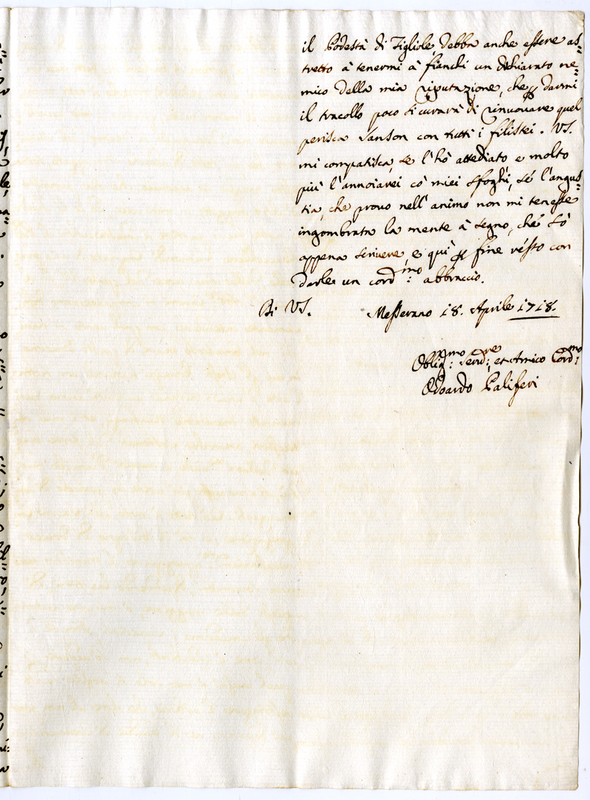 il Podestà di Tigliole debba anche essere as=
tretto à tenermi à fianchi un dichiarato ne=
mico della mia riputazione, che p darmi
il tracollo poco si curarà di rinuovare quel
perisca Sanson con tutti i filistei. VS.
mi compatisca, se l'hò attediato e molto
più l'annoiarei cò miei sfoghi, sé l'angus=
tia, che provo nell'animo non mi tenesse
ingombrata la mente à segno, che sò
appena scrivere, e quì p fine résto con
darle un cord:mo abbraccio.
Di VS. Messerano 18. Aprile 1718.
Oblig:mo Serv:re et Amico Cord:mo
Odoardo Paliferi